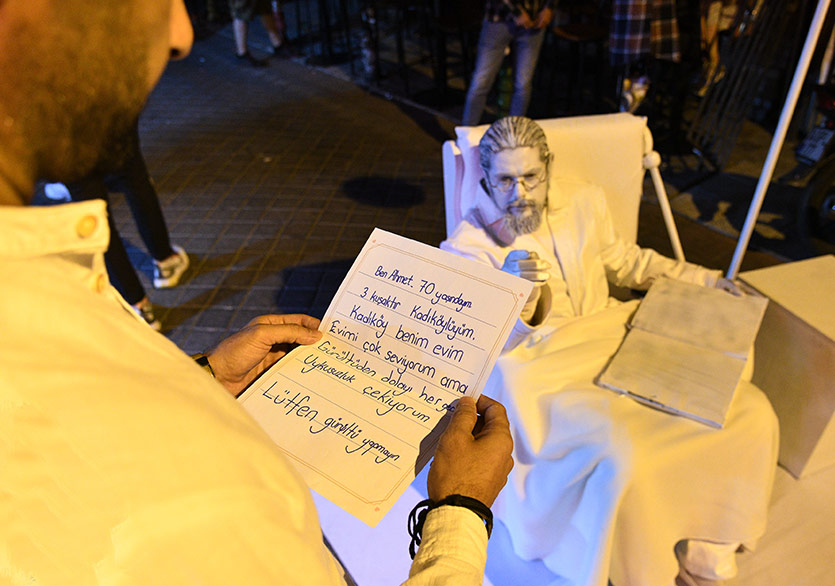 Ben Ahmet. 70 yaşındayım
3. kuşaktır Kadıköylüyüm.
Kadıköy benim evim
Evimi çok seviyorum ama
Gürültüden dolayı her
Uykusuzluk çekiyorum
Lütfen gürültü yapmayın